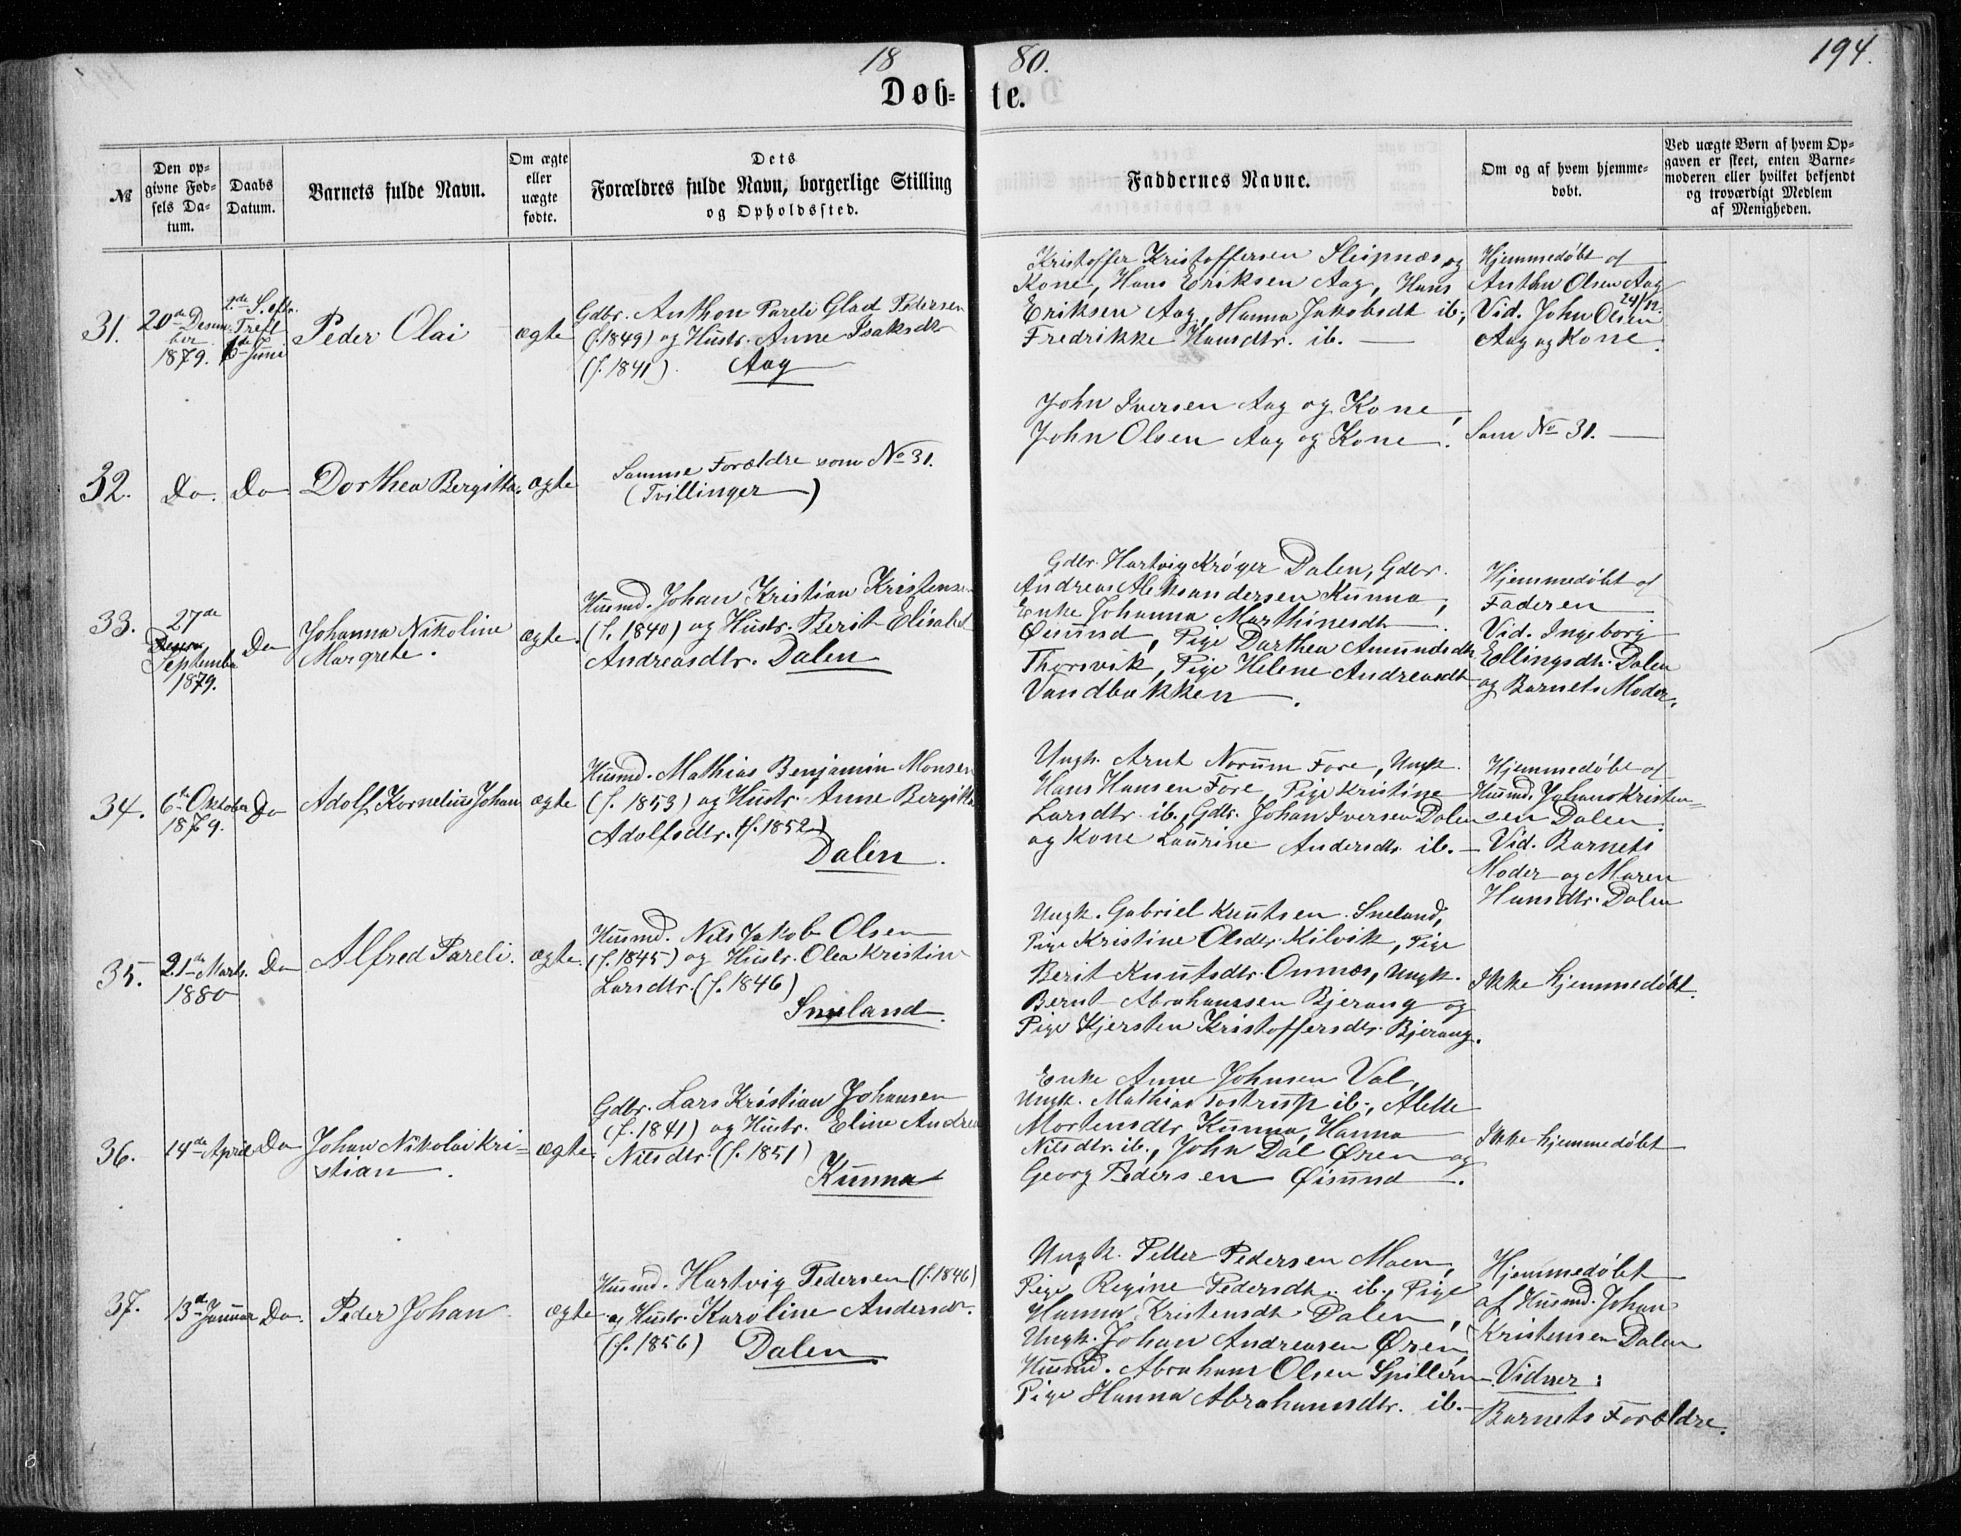 18 80. 194.
Døb- te.
№
Den opgivne Fødsels Datum.
Daabs Datum.
Barnets fulde Navn.
Om ægte eller uægte fødte.
Dets Forældres fulde Navn, borgerlige Stilling og Opholdssted.
Faddernes Navne.
Om og af hvem hjemmedøbt.
Ved uægte Børn af hvem Opgaven er skeet, enten Barnemoderen eller hvilket bekjendt og troværdigt Medlem af Menigheden.
31.
20de Desember
1879.
2de S. eftr.
Tref.
6 Juni
Peder Olai
ægte
Gdbr. Anthon Pareli Glad Pedersen
(f. 1849) og Hustr. Anne Isaksdtr
(f. 1841). Aag
Kristoffer Kristoffersen Sleipnæs og
Kone, Hans Eriksen Aag, Hans
Eriksen Aag, Hanna Jakobsdt ib.,
Fredrikke Hansdtr. ib.
Hjemmedøbt af
Anthn Olsen Aag
24/12.
Vid. John Olsen
Aag og Kone.
32.
Do.
Do
Dorthea Bergitta
ægte
Samme Forældre som No 31.
(Tvillinger)
John Iversen Aag og Kone,
John Olsen Aag og Kone.
Som No 31.
33.
27de
September
1879.
Do
Johanna Nikoline
Margrete.
ægte.
Husmd. Johan Kristian Kristensen
(f. 1840) og Hustr. Berit Elisabet
Andreasdtr. Dalen
Gdbr. Hartvig Krøger Dalen, Gdbr.
Andreas Aleksandersen Kunna,
Enke Johanna Marthinesdt
Øisund, Pige Darthea Amundsdtr
Thorsvik, Pige Helene Andreasdt
Vandbakken.
Hjemmedøbt af
Faderen
Vid. Ingeborg
Ellingsdtr. Dalen
og Barnets Moder.
34.
6te Oktober
1879.
Do
Adolf Kornelius Johan
ægte
Husmd. Mathias Benjamin Monsen
(f. 1853) og Hustr. Anne Bergitte
Adolfsdtr. (f. 1852)
Dalen.
Ungk. Arnt Norum Fore, Ungk.
Hans Hansen Fore, Pige Kristine
Larsdtr. ib., Gdbr. Johan Iversen Dalen
og Kone Laurine Andersdtr ib.
Hjemmedøbt af
Husmd. Johan Kristen=
sen Dalen.
Vid. Barnets
Moder og Maren
Hansdtr. Dalen
35.
21de Marts.
1880
Do
Alfred Pareli.
ægte.
Husmd. Nils Jakob Olsen
(f. 1845) og Hustr. Olea Kristine
Larsdtr. (f. 1846)
Sneland.
Ungk. Gabriel Knutsen Sneland,
Pige Kristine Olsdtr Kilvik, Pige
Berit Knutsdtr. Ounæs, Ungk.
Bernt Abrahamsen Bjerang og
Pige Kjersten Kristoffersdtr. Bjerang.
Ikke hjemmedøbt.
36.
14de April
Do
Johan Nikolai Kri=
stian.
ægte.
Gdbr. Lars Kristian Johansen
(f. 1841) og Hustr. Eline Andrea
Nilsdtr. (f. 1851)
Kunna
Enke Anne Johnsen Val,
Ungk. Mathias Tostrup ib., Alette
Mortensdtr Kunna, Hanna
Nilsdtr. ib., John Dal Øren og
Georg Pedersen Øisund.
Ikke hjemmedøbt
37.
13de Januar
Do.
Peder Johan
ægte
Husmd. Hartvig Pedersen (f. 1846)
og Hustr. Karoline Andersdtr.
(f. 1856) Dalen.
Ungk. Petter Pedersen Moen,
Pige Regine Pedersdt. ib., Pige
Hanna Kristensdt Dalen,
Ungk. Johan Andreasen Øren,
Husmd. Abraham Olsen Spilleren
Pige Hanna Abrahamsdtr. ib.
Hjemmedøbt
af Husmd. Johan
Kristensen Dalen
Vidner:
Barnets Forældre.